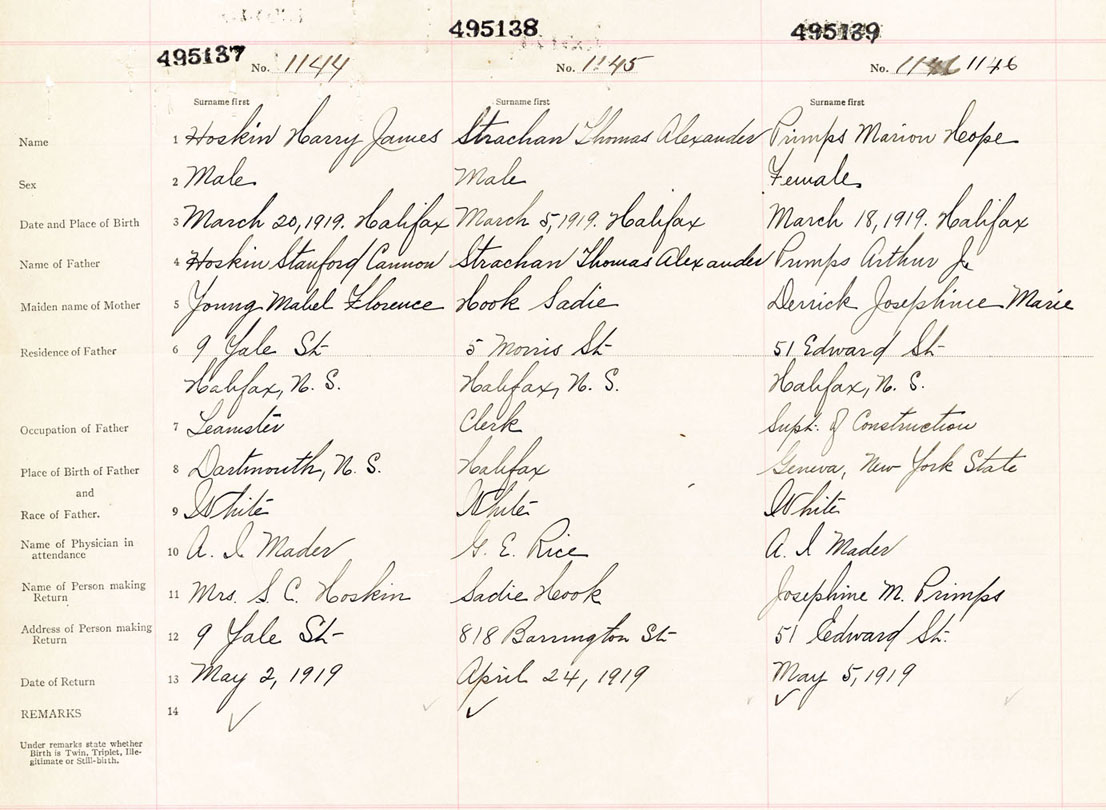 495137 495138 495139
No. 1144 No. 1145 No. 1146 1146
Surname first Surname first Surname first
Name 1 Hoskin Harry James Strachan Thomas Alexander Primps Marion Hope
Sex 2 Male Male Female
Date and Place of Birth 3 March 20, 1919. Halifax March 5, 1919. Halifax March 18, 1919. Halifax
Name of Father 4 Hoskin Stanford Cannon Strachan Thomas Alexander Primps Arthur J.
Maiden name of Mother 5 Young Mabel Florence Hook Sadie Derrick Josephine Marie
Residence of Father 6 9 Yale St 5 Morris St 51 Edward St
Halifax, N. S. Halifax, N. S. Halifax, N. S.
Occupation of Father 7 Teamster Clerk Supt. of Construction
Place of Birth of Father 8 Dartmouth, N. S. Halifax Geneva, New York State
and
Race of Father. 9 White White White
Name of Physician in
attendance 10 A. I Mader G. E. Rice A. I Mader
Name of Person making
Return 11 Mrs. S. C. Hoskin Sadie Hook Josephine M. Primps
Address of Person making
Return 12 9 Yale St 818 Barrington St 51 Edward St.
Date of Return 13 May 2, 1919 April 24, 1919 May 5, 1919
REMARKS 14 ✓ ✓ ✓
Under remarks state whether
Birth is Twin, Triplet, Ille-
gitimate or Still-birth.